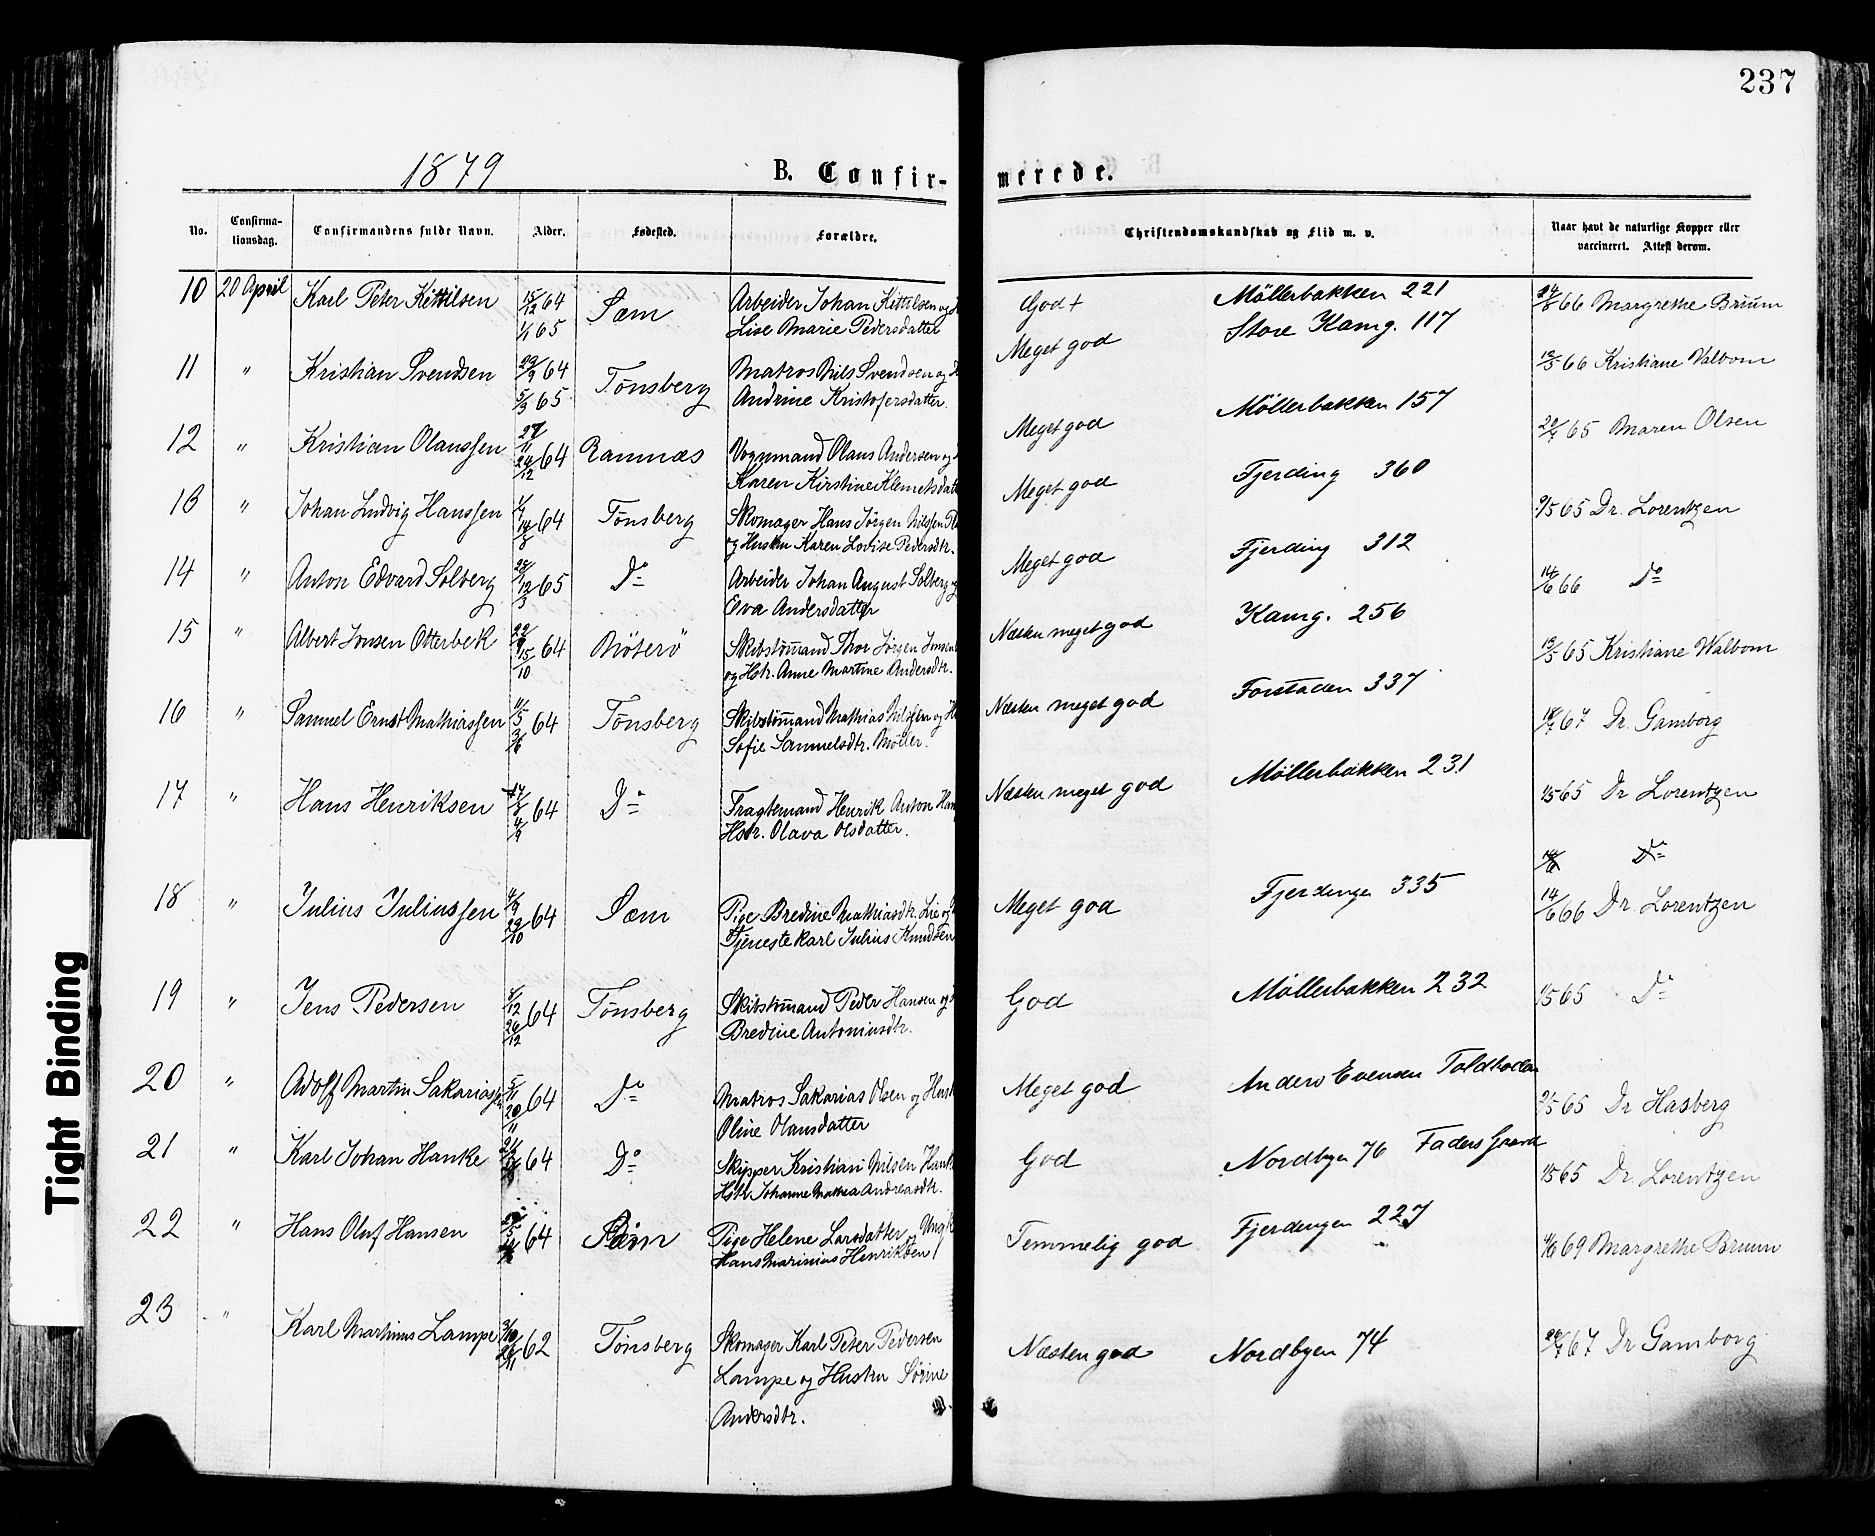 237
1879
B. Confir-
merede.
No.
Confirma-
tionsdag.
Confirmandens fulde Navn.
Alder.
Fødested.
Forældre.
Christendomskundskab og Flid m. v.
Naar havt de naturlige Kopper eller
vaccineret. Attest derom.
10 20 April Karl Peter Kittilsen 15/12 64 Sæm Arbeider Johan Kittilsen og God + Møllerbakken 221 24/8 66 Margrethe Bruun
1/1 65 Lise Marie Pedersdatter Store Kamg. 117
11 " Kristian Svendsen 23/9 64 Tønsberg Matros Nils Svendsen og Meget god 12/5 66 Kristiane Valbom
5/3 65 Andrine Kristofersdatter.
12 " Kristian Olanssen 27/11 64 Ramnæs Vognmand Olaus Andersen og Meget god Møllerbakken 157 22/7 65 Maren Olsen
24/12 Karen Kirstine Klemetsdatt
13 " Johan Ludvig Hanssen 1/7 64 Tønsberg Skomager Hans Jørgen Nilssen Meget god Fjerding 360 9/5 65 Dr. Lorentzen
14/8 og Hustru Karen Lovise Pedersdtr.
14 " Anton Edvard Solberg 28/1 65 Do Arbeider Johan August Solberg og Meget god Fjerding 312 14/6 66 Do
12/3 Eva Andersdatter
15 " Albert Jonsen Otterbeck 64 Nøterø Skibstømmand Thor Jørgen Jonsen Næsten meget god Kamg. 256 12/5 65 Kristiane Walbom
15/10 og Hstr. Anne Martine Andersdtr.
16 " Samuel Ernst Mathiassen 11/5 64 Tønsberg Skibstømmand Mathias Nilssen og Næsten meget god Forstaden 337 67 Dr. Gamborg
3/6 Sofie Samuelsdtr. Møller.
17 " Hans Henriksen 64 Do Fragtemand Henrik Anton Han Næsten meget god Møllerbakken 231 65 Dr Lorentzen
4/9 Hstr. Olava Olsdatter.
Do
18 " Julius Juliussen 4/9 64 Sæm Pige Bredine Mathiasdtr. Lie og Meget god Fjerdingen 335 14/6 66 Dr. Lorentzen
29/10 Tjenestekarl Julius Knudsen
19 " Jens Pedersen 64 Tønsberg Skibstømmand Peder Hansen og God Møllerbakken 232 65 Do
26/12 Bredine Antoniusdtr.
20 " Adolf Martin Sakariassen 5/11 64 Do Matros Sakarias Olsen og Hustr Meget god Anders Evensen Toldboden 9/5 65 Dr Hasberg
20/11 Oline Olausdatter
21 " Karl Johan Hanke 64 Do Skipper Kristian Nilsen Hank God Nordbyen 76 Faders Gaard 65 Dr. Lorentzen
Hstr. Johanne Mathea Andreasdtr.
22 " Hans Oluf Hansen 64 Sæm Pige Helene Larsdatter og Ungk Temmelig god Fjerdengen 227 69 Margrethe Bruun
Hans Marinius Henriksen
23 " Karl Martinus Lampe 62 Tønsberg Skomager Karl Peter Pedersen Næsten god Nordbyen 74 67 Dr Gamborg
Lampe og Hustru Sørine
Andersdtr.
Tight Binding